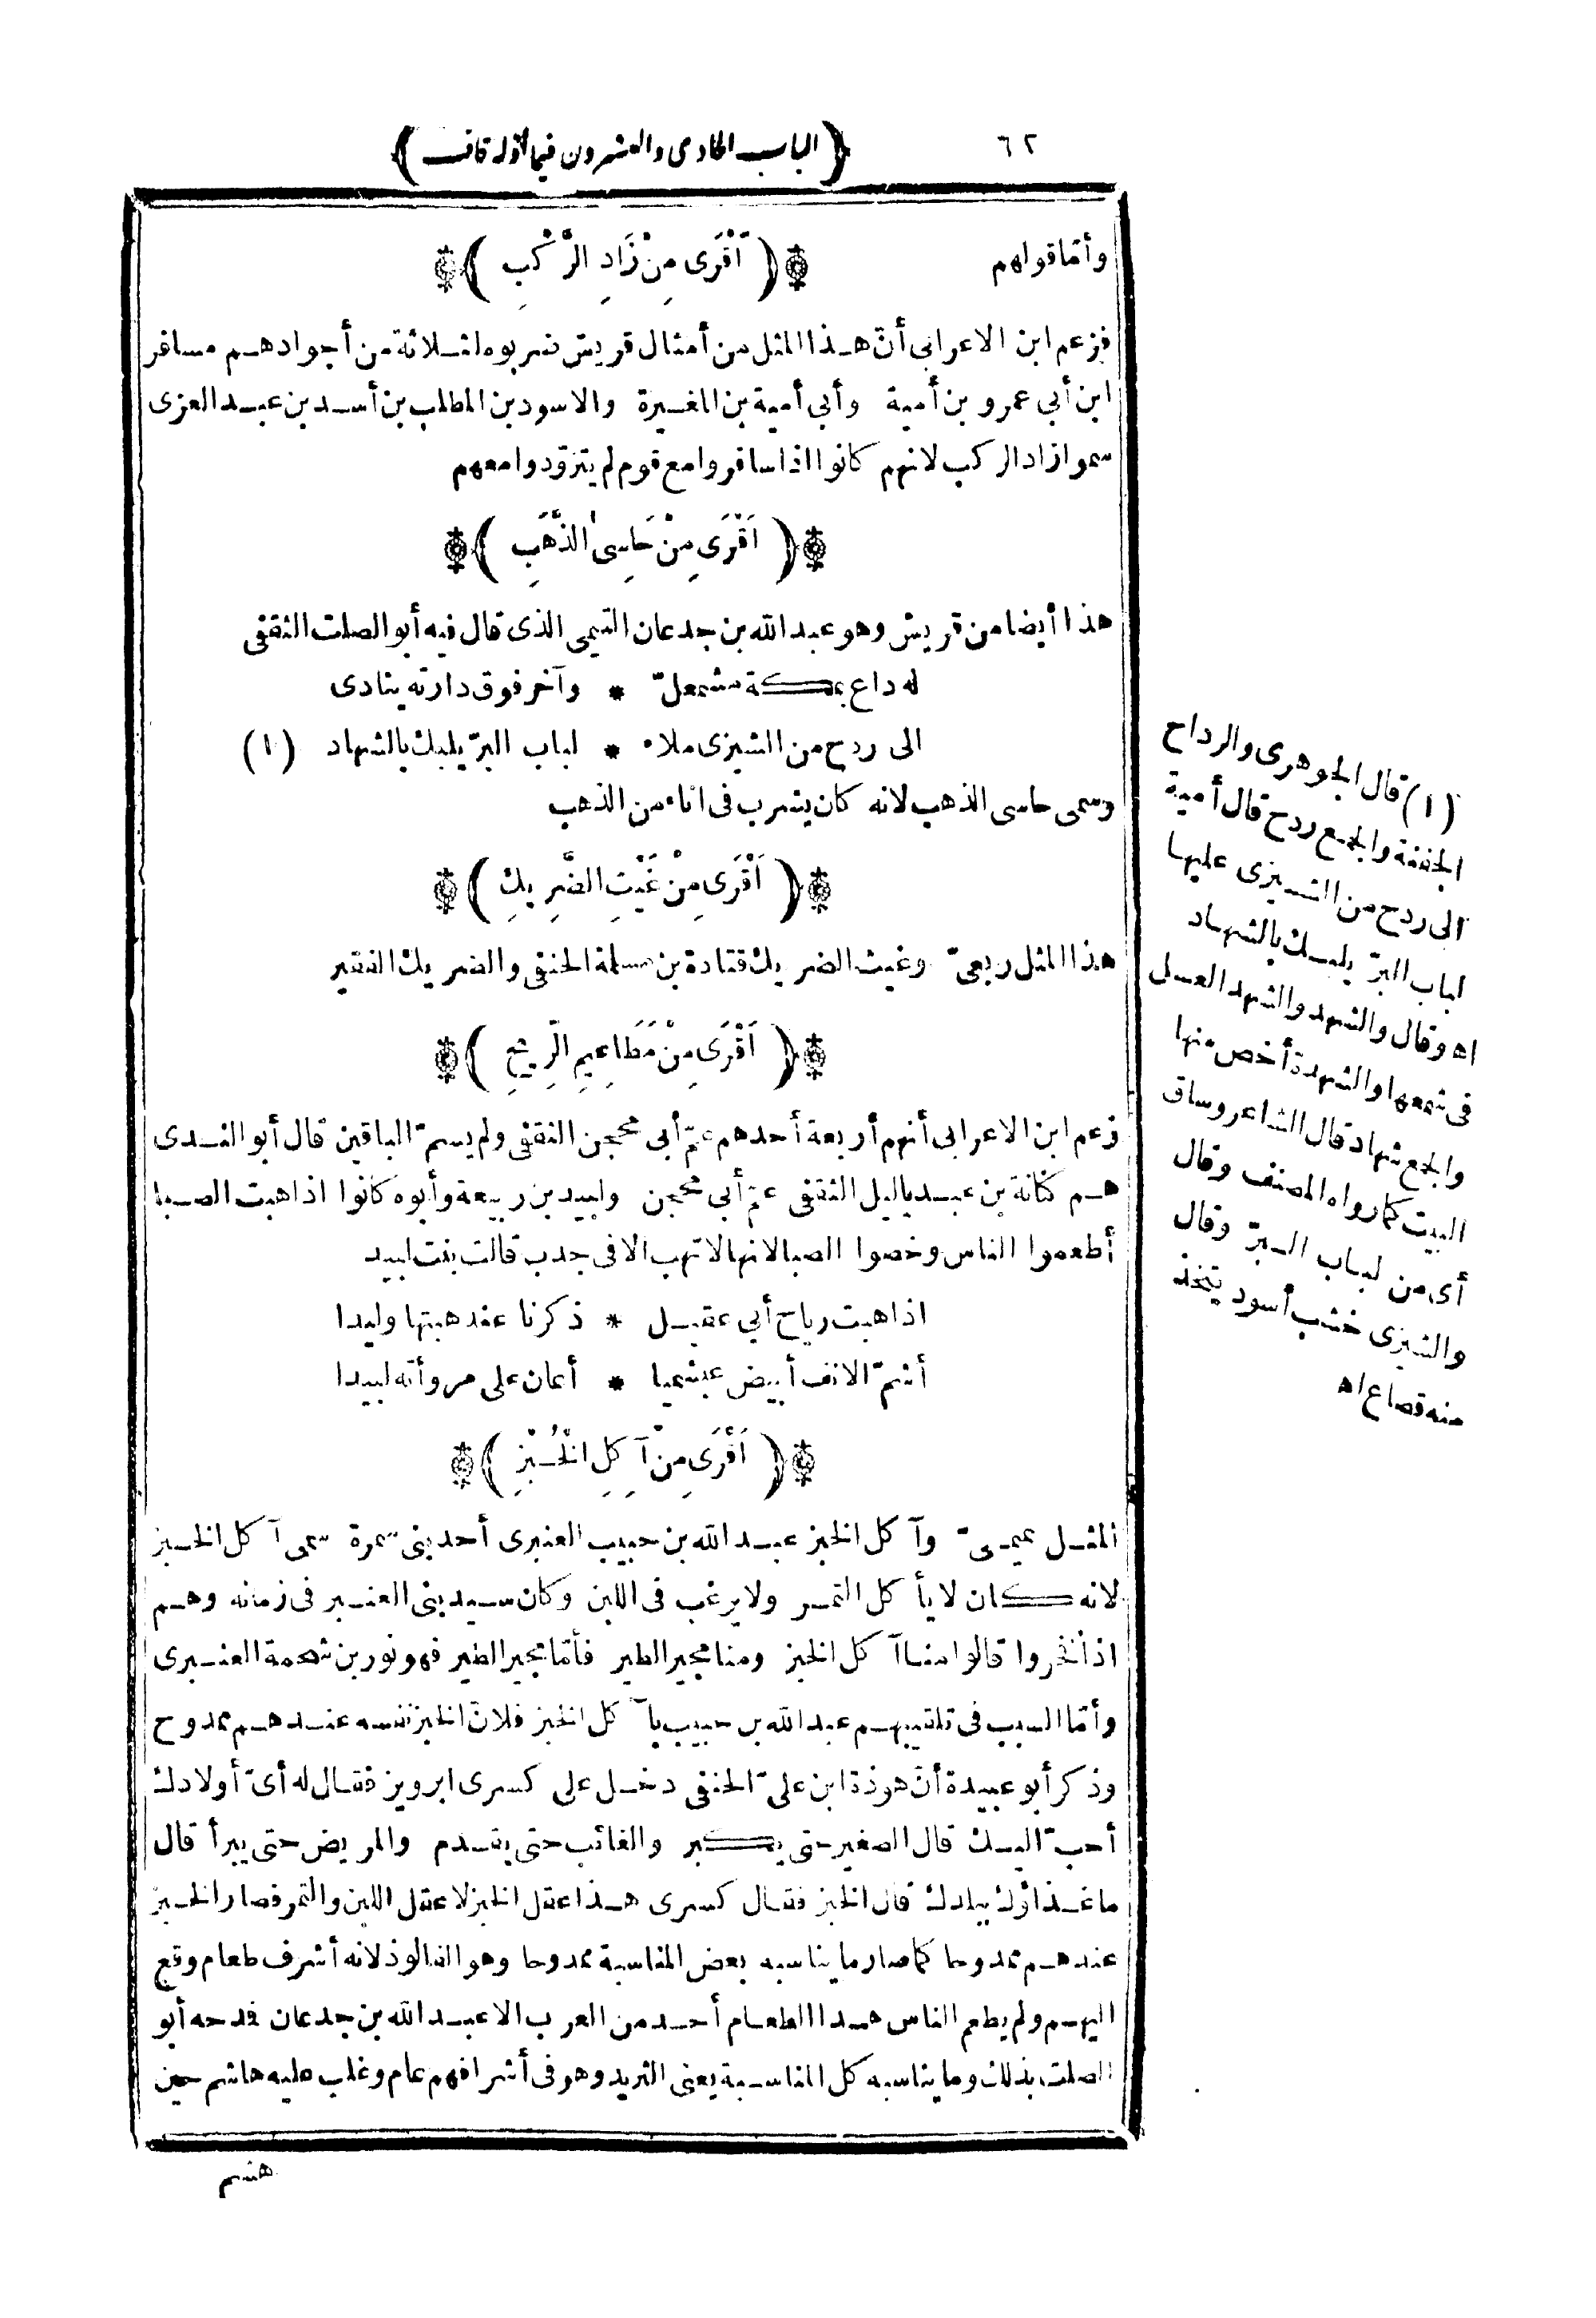 ٦٢
﴿ الباب الحادى والعشرون فيما أوّله قاف ﴾
وأمّا قولهم ﴿ أَقْرَى مِنْ زَادِ الرَّكْبِ ﴾
فزعم ابن الاعرابى أنّ هذا المثل من أمثال قريش ضربوه لثلاثة من أجوادهم مسافر
ابن أبى عمرو بن أمية وأبى أمية بن المغيرة والاسود بن المطلب بن أسد بن عبد العزى
سموا زاد الركب لانهم كانوا اذا سافروا مع قوم لم يتزوّدوا معهم
﴿ أَقْرَى مِنْ حَاسِى الذَّهَبِ ﴾
هذا أيضا من قريش وهو عبد الله بن جدعان التيمى الذى قال فيه أبو الصلت الثقفى
له داع بمكة مشمعلّ * وآخر فوق دارته ينادى
الى ردح من الشيزى ملاء * لباب البرّ يلبك بالشهاد (١)
وسمى حاسى الذهب لانه كان يشرب فى اناء من الذهب
﴿ أَقْرَى مِنْ غَيْثِ الضَّرِيكِ ﴾
هذا المثل ربعىّ وغيث الضريك قتادة بن مسلمة الحنفى والضريك الفقير
﴿ أَقْرَى مِنْ مَطَاعِيمِ الرِّيحِ ﴾
زعم ابن الاعرابى أنهم أربعة أحدهم عمّ أبى محجن الثقفى ولم يسمّ الباقين قال أبو الندى
هم كنانة بن عبد ياليل الثقفى عمّ أبى محجن ولبيد بن ربيعة وأبوه كانوا اذا هبت الصبا
أطعموا الناس وخصوا الصبا لانها لا تهب الا فى جدب قالت بنت لبيد
اذا هبت رياح أبى عقيل * ذكرنا عند هبتها وليدا
أشمّ الانف أبيض عبشميا * أعان على مروأته لبيدا
﴿ أَقْرَى مِنْ آكِلِ الْخُبْزِ ﴾
المثل تميمىّ وآكل الخبز عبد الله بن حبيب العنبرى أحد بنى سمرة سمى آكل الخبز
لانه كان لا يأكل التمر ولا يرغب فى اللبن وكان سيد بنى العنبر فى زمانه وهم
اذا فخروا قالوا منا آكل الخبز ومنا مجير الطير فأمّا مجير الطير فهو ثور بن شحمة العنبرى
وأمّا السبب فى تلقيبهم عبد الله بن حبيب بآكل الخبز فلانّ الخبز نفسه عندهم ممدوح
وذكر أبو عبيدة أنّ هوذة ابن علىّ الحنفى دخل على كسرى ابرويز فقال له أىّ أولادك
أحبّ اليك قال الصغير حتى يكبر والغائب حتى يقدم والمريض حتى يبرأ قال
ما غذاؤك ببلدك قال الخبز فقال كسرى هذا عقل الخبز لا عقل اللبن والتمر فصار الخبز
عندهم ممدوحا كما صار ما يناسبه بعض المناسبة ممدوحا وهو الفالوذ لانه أشرف طعام وقع
اليهم ولم يطعم الناس هذا الطعام أحد من العرب الا عبد الله بن جدعان فدحه أبو
الصلت بذلك وما يناسبه كل المناسبة يعنى الثريد وهو فى أشرافهم عام وغلب عليه هاشم حين
هشم
(١) قال الجوهرى والرداح
الجفنة والجمع ردح قال أمية
الى ردح من الشيزى عليها
لباب البرّ يلبك بالشهاد
اه وقال والشهد والشهد العسل
فى شمعها والشهدة أخص منها
والجمع شهاد قال الشاعر وساق
البيت كما رواه المصنف وقال
أى من لباب البرّ وقال
والشيزى خشب أسود يتخذ
منه قصاع اه